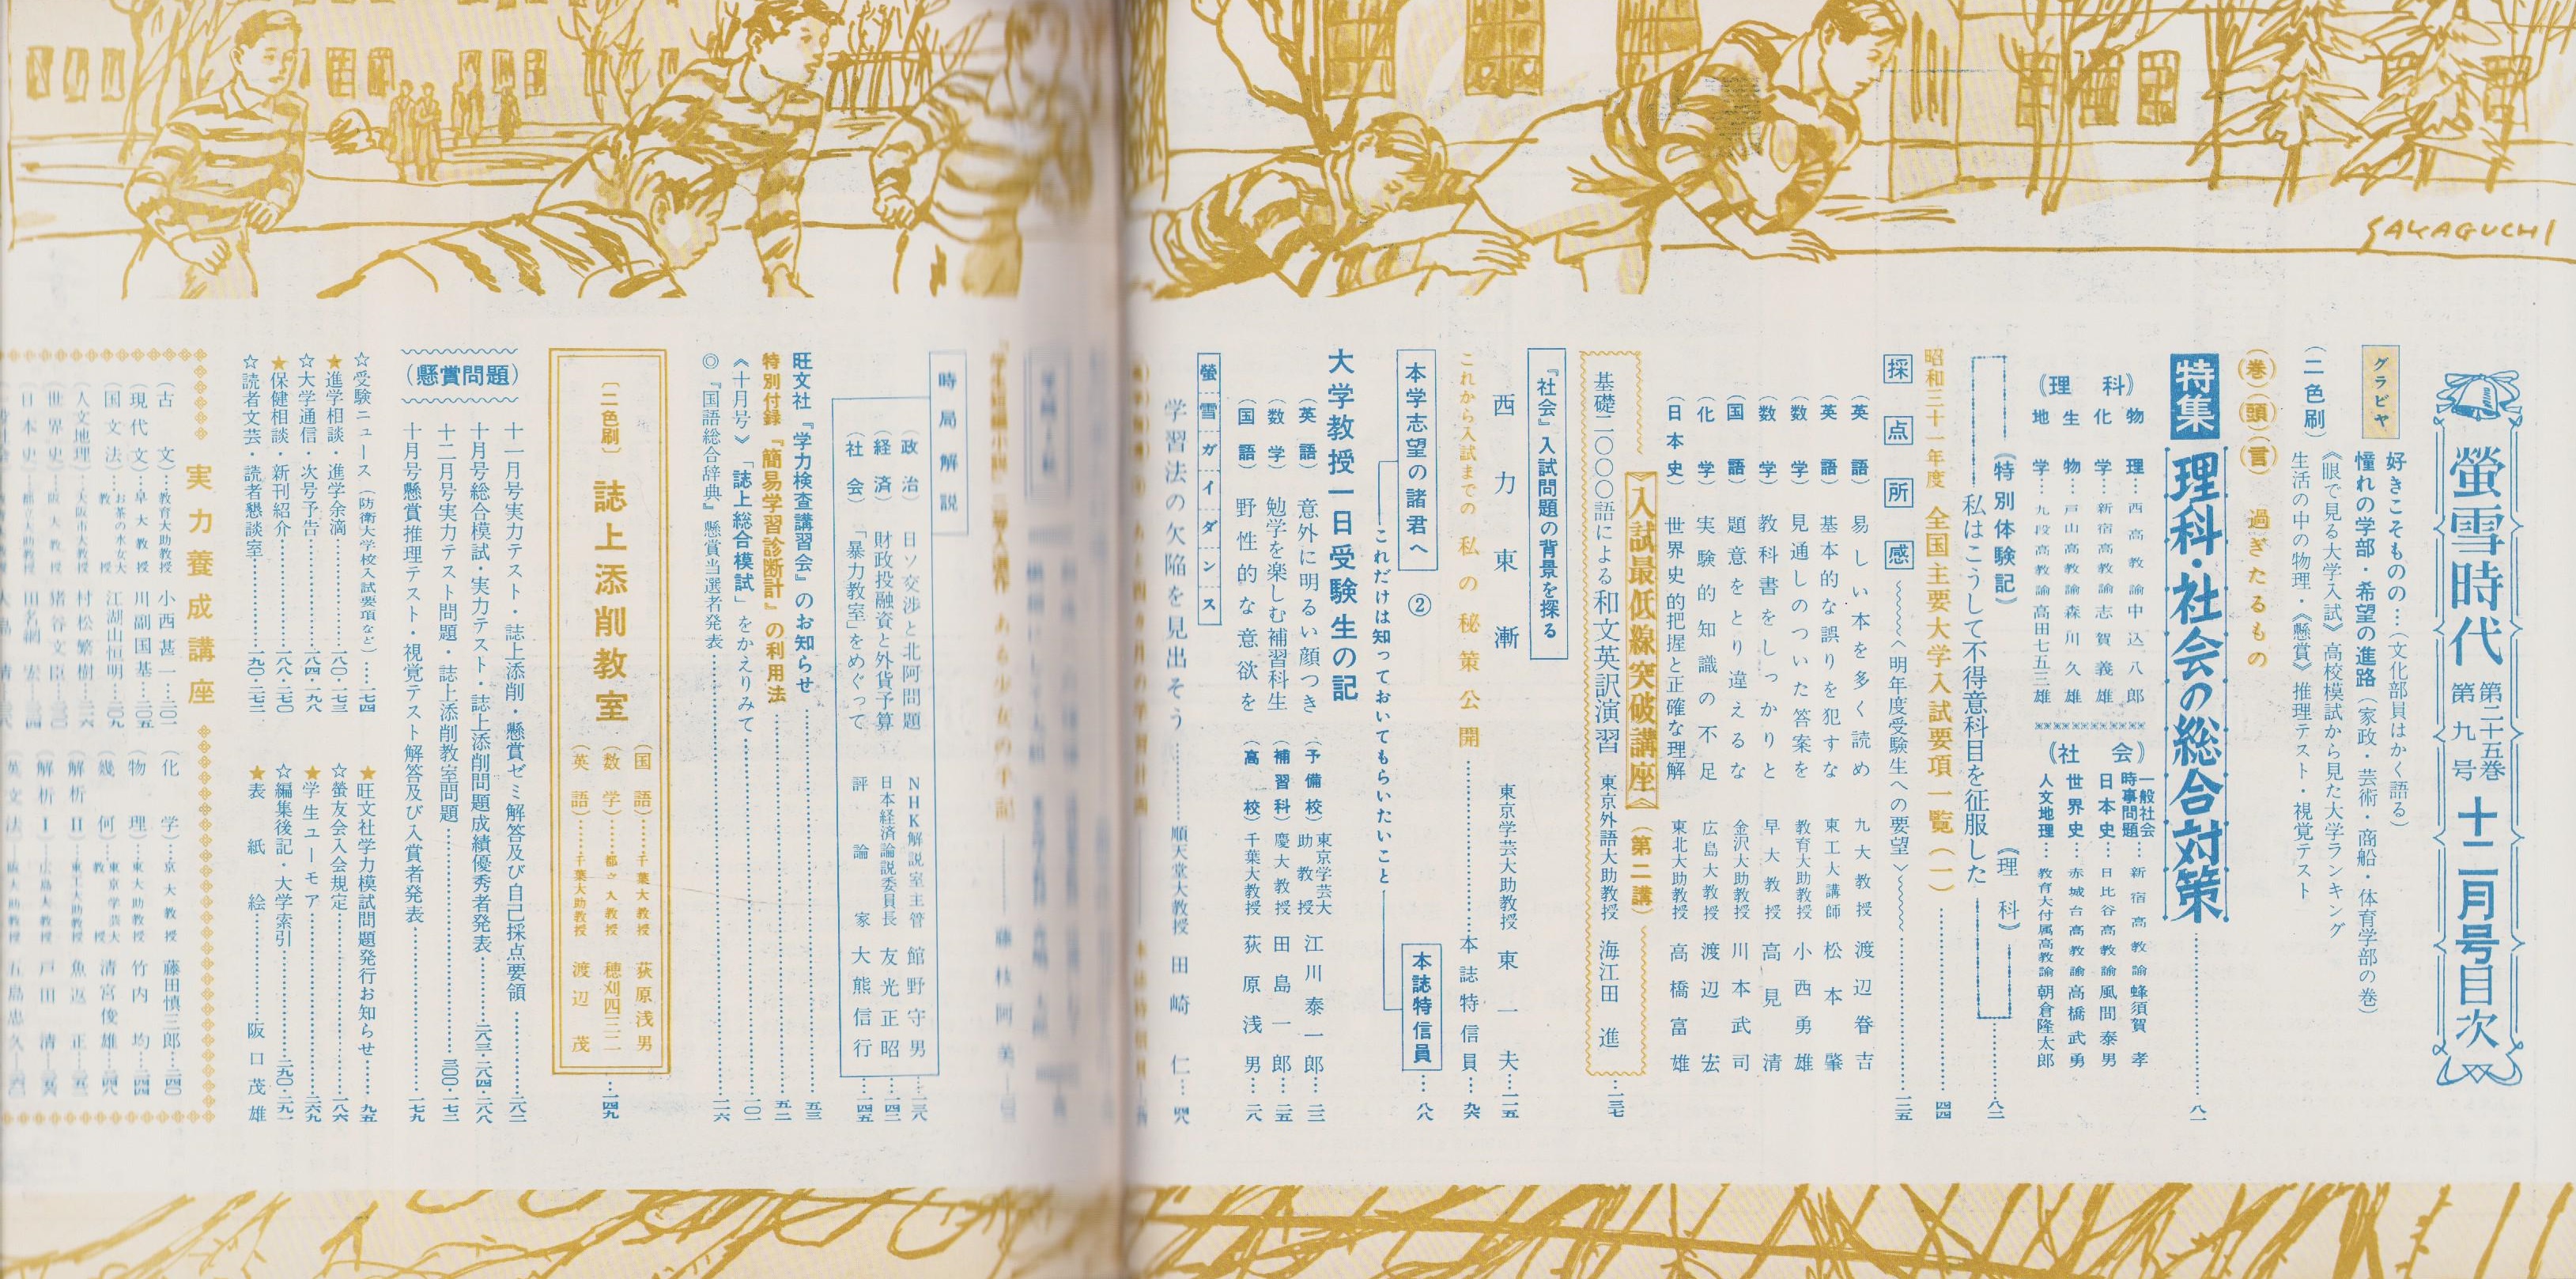 SAKAGUCHI
螢雪時代 第二十五巻 第九号 十二月号目次
グラビヤ
好きこそものの…(文化部員はかく語る)
憧れの学部・希望の進路(家政・芸術・商船・体育学部の巻)
(二色刷)
《眼で見る大学入試》高校模試から見た大学ランキング
生活の中の物理・《懸賞》推理テスト・視覚テスト
(巻)(頭)(言) 過ぎたるもの
特集 理科・社会の総合対策……八一
(理科)
物理…西高教諭 中込八郎
化学…新宿高教諭 志賀義雄
生物…戸山高教諭 森川久雄
地学…九段高教諭 高田七五三雄
(社会)
一般社会 時事問題…新宿高教諭 蜂須賀孝
日本史…日比谷高教諭 風間泰男
世界史…赤城台高教諭 高橋武勇
人文地理…教育大付属高教諭 朝倉隆太郎
(特別体験記) 私はこうして不得意科目を征服した (理科)……八二
昭和三十一年度 全国主要大学入試要項一覧(一)……四四
採点所感 〈明年度受験生への要望〉……三五
(英語) 易しい本を多く読め 九大教授 渡辺眷吉
(英語) 基本的な誤りを犯すな 東工大講師 松本肇
(数学) 見通しのついた答案を 教育大助教授 小西勇雄
(数学) 教科書をしっかりと 早大教授 高見清
(国語) 題意をとり違えるな 金沢大助教授 川本武司
(化学) 実験的知識の不足 広島大教授 渡辺宏
(日本史) 世界史的把握と正確な理解 東北大助教授 高橋富雄
《入試最低線突破講座》(第二講)
基礎二〇〇〇語による和文英訳演習 東京外語大助教授 海江田進…一三七
『社会』入試問題の背景を探る
西力東漸 東京学芸大助教授 東一夫…一一五
これから入試までの 私の秘策公開……本誌特信員…九六
本学志望の諸君へ ② これだけは知っておいてもらいたいこと 本誌特信員…八八
大学教授一日受験生の記
(英語) 意外に明るい顔つき (予備校) 東京学芸大助教授 江川泰一郎…二三
(数学) 勉学を楽しむ補習科生 (補習科) 慶大教授 田島一郎…二五
(国語) 野性的な意欲を (高校) 千葉大教授 荻原浅男…二八
螢雪ガイダンス
学習法の欠陥を見出そう……順天堂大教授 田崎仁…
時局解説
(政治) 日ソ交渉と北阿問題 NHK解説室主管 館野守男…一三八
(経済) 財政投融資と外貨予算 日本経済論説委員長 友光正昭…一四二
(社会) 「暴力教室」をめぐって 評論家 大熊信行…一四五
旺文社『学力検査講習会』のお知らせ……五三
特別付録『簡易学習診断計』の利用法……五二
《十月号》「誌上総合模試」をかえりみて……一〇二
◎『国語総合辞典』懸賞当選者発表……二六
[二色刷] 誌上添削教室…一四九
(国語)…千葉大教授 荻原浅男
(数学)…都立大教授 穂刈四三二
(英語)…千葉大助教授 渡辺茂
(懸賞問題)
十一月号実力テスト・誌上添削・懸賞ゼミ解答及び自己採点要領……二八二
十月号総合模試・実力テスト・誌上添削問題成績優秀者発表……二八三・二八四・二八八
十二月号実力テスト問題・誌上添削教室問題……三〇〇・一七二
十月号懸賞推理テスト・視覚テスト解答及び入賞者発表……一七九
☆受験ニュース(防衛大学校入試要項など)……一七四
★進学相談・進学余滴……一八〇・一七三
☆大学通信・次号予告……一八四・一九八
★保健相談・新刊紹介……一八八・二七〇
☆読者文芸・読者懇談室……一九〇・二七二
★旺文社学力模試問題発行お知らせ……九五
☆螢友会入会規定……一八六
★学生ユーモア……二六九
☆編集後記・大学索引……二九〇・二九一
★表紙絵……阪口茂雄
実力養成講座
(古文)…教育大助教授 小西甚一…二〇一
(現代文)…早大教授 川副国基…二〇五
(国文法)…お茶の水女大教授 江湖山恒明…二〇九
(人文地理)…大阪市大教授 村松繁樹…
(世界史)…阪大教授 猪谷文臣…
日本史)…都立大助教授 田名網宏…
(化学)…京大教授 藤田慎三郎…二四〇
(物理)…東大助教授 竹内均…二四四
(幾何)…東京学芸大教授 清宮俊雄…二四八
(解析II)…東工大助教授 魚返正…
(解析I)…広島大教授 戸田清…
英文法)…阪大助教授 五島忠久…